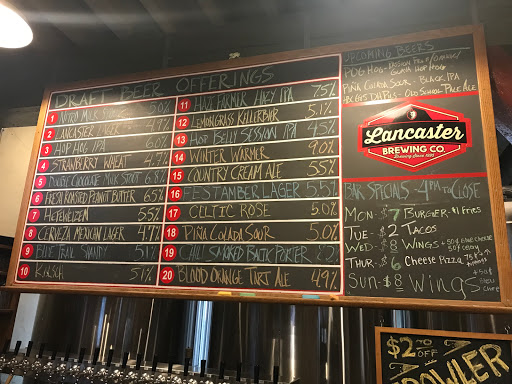 DRAFT BEER OFFERINGS
1 NITRO MILK
2 LANCASTER LAGER
3 HOP HOG IPA 6.0%
4 STRAWBERRY WHEAT
5 DOUBLE CHOCOLATE MILK STOUT 6.8%
6 FRESH ROASTED PEANUT BUTTER
7 HEFEWEIZEN 5.5%
8 CERVEZA MEXICAN LAGER 4.9%
9 BLUE TRAIL SHANDY 5.1%
10 KOLSCH 5.1%
11 HAZE IPA 7.5%
12 LEMONGRASS KELLERBIER 5.1%
13 HOP BELLY SESSION IPA 4.5%
14 WINTER WARMER 9.0%
15 COUNTRY CREAM ALE 5.5%
16 FESTAMBER LAGER 5.5%
17 CELTIC ROSE 5.0%
18 PIÑA COLADA SOUR 5.0%
19 SMOKED BALTIC PORTER
20 BLOOD ORANGE TART ALE 4.9%
UPCOMING BEERS
PIÑA COLADA SOUR - BLACK IPA
OLD SCHOOL PALE ALE
Lancaster
BREWING CO.
BAR SPECIALS - 4PM TO CLOSE
MON - $7 BURGER & FRIES
TUE - $2 TACOS
WED - $8 WINGS +50¢ BLUE CHEESE
50¢ CELERY
THUR - $6 CHEESE PIZZA 75¢
SUN - $8 WINGS +50¢
$2.00
OFF
GROWLER